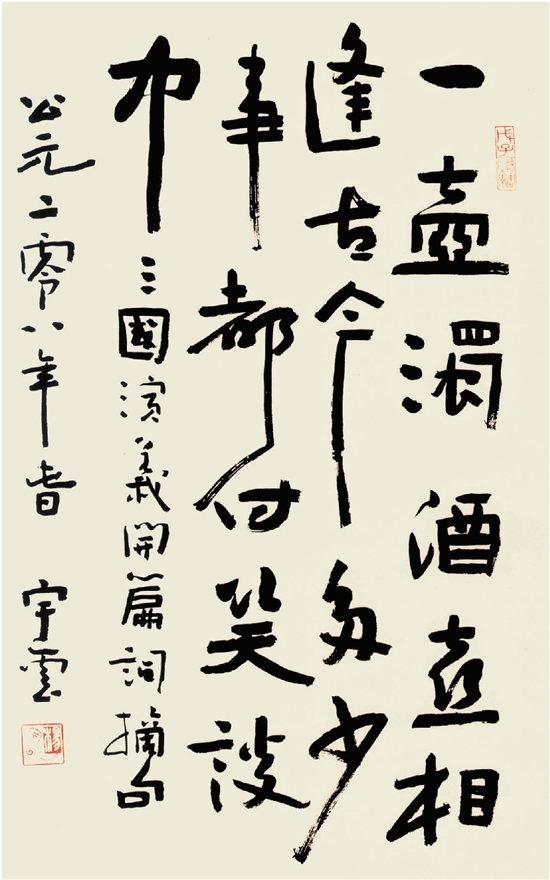 戊子
一壺濁酒喜相
逢古今多少
事都付笑談
中
三國演義開篇詞摘句
公元二零八年書 宇雲